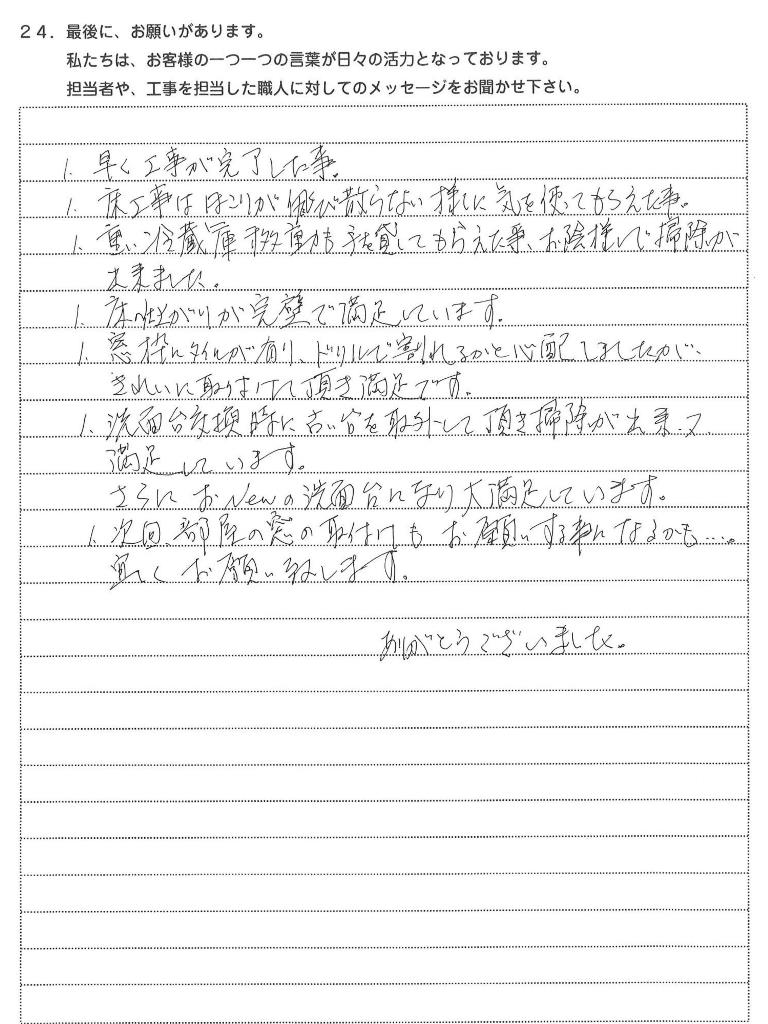 ２４．最後に、お願いがあります。
私たちは、お客様の一つ一つの言葉が日々の活力となっております。
担当者や、工事を担当した職人に対してのメッセージをお聞かせ下さい。
1. 早く工事が完了した事。
1. 床工事はほこりが飛び散らない様に気を使ってもらえた事。
1. 重い冷蔵庫移動も手を貸してもらえた事、お陰様で掃除が
出来ました。
1. 床仕上がりが完璧で満足しています。
1. 窓枠にタイルが有り、ドリルで割れるかと心配しましたが、
きれいに取り付けて頂き満足です。
1. 洗面台交換時に古い台を取外して頂き掃除が出来、又
満足しています。
さらにおNewの洗面台になり大満足しています。
1. 次回、部屋の窓の取付けもお願いする事になるかも……。
宜しくお願い致します。
ありがとうございました。